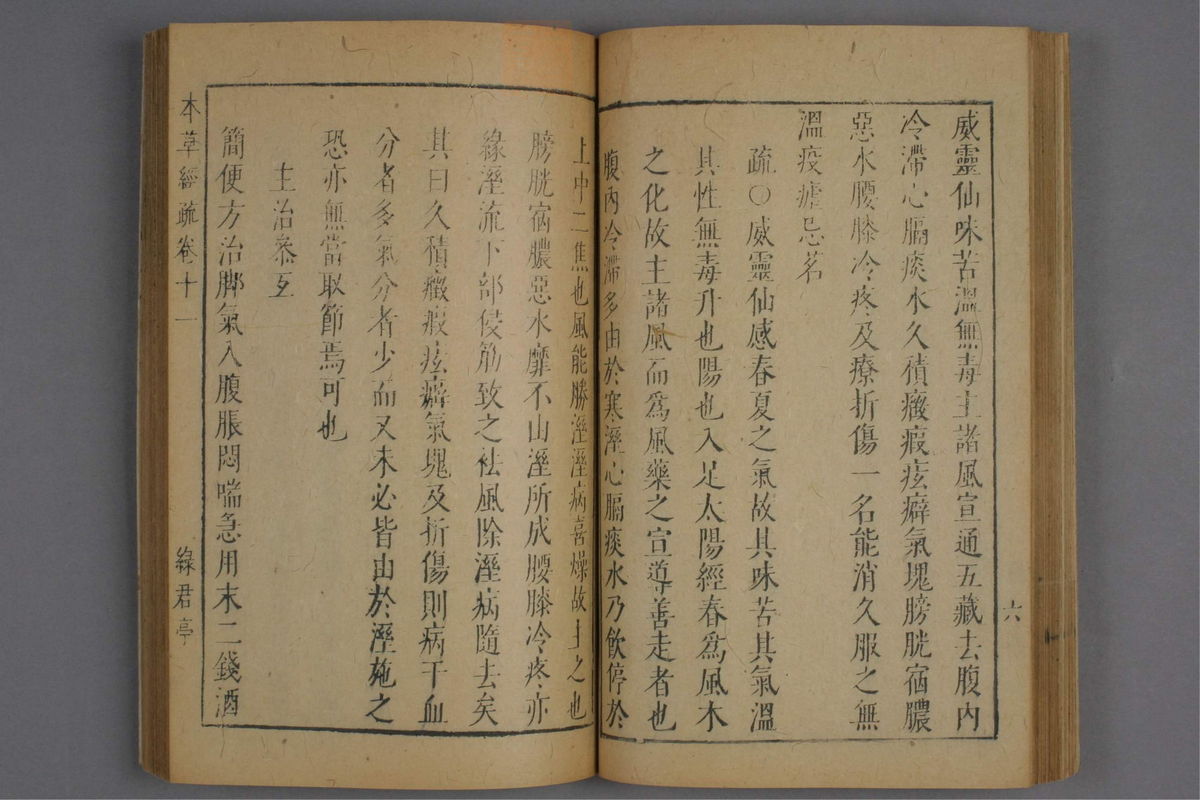 威靈仙味苦溫無毒主諸風宣通五藏去腹內
冷滯心膈痰水久積癥瘕痃癖氣塊膀胱宿膿
惡水腰膝冷疼及療折傷一名能消久服之無
溫疫瘧忌茗
疏〇威靈仙感春夏之氣故其味苦其氣溫
其性無毒升也陽也入足太陽經春爲風木
之化故主諸風而爲風藥之宣導善走者也
腹內冷滯多由於寒溼心膈痰水乃飲停於
上中二焦也風能勝溼溼病喜燥故主之也
膀胱宿膿惡水靡不山溼所成腰膝冷疼亦
緣溼流下部侵筋致之袪風除溼病隨去矣
其曰久積癥瘕痃癖氣塊及折傷則病干血
分者多氣分者少而又未必皆由於溼施之
恐亦無當取節焉可也
主治叅互
簡便方治脚氣入腹脹悶喘急用末二錢酒
六
本草經疏卷十一
綠君亭